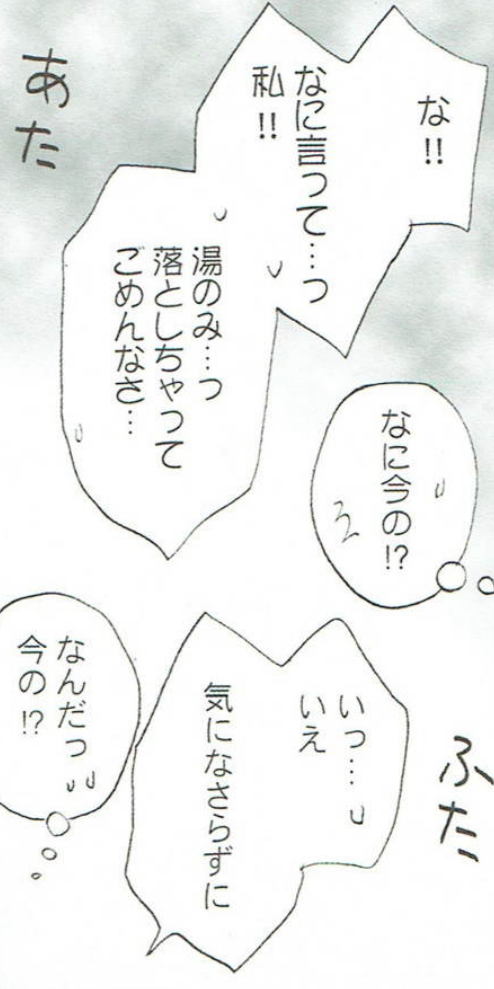 な!!
なに言って…っ
私!!
湯のみ…っ
落としちゃって
ごめんなさ…
あた
なに今の!?
ふた
いっ…
いえ
気になさらずに
なんだっ
今の!?